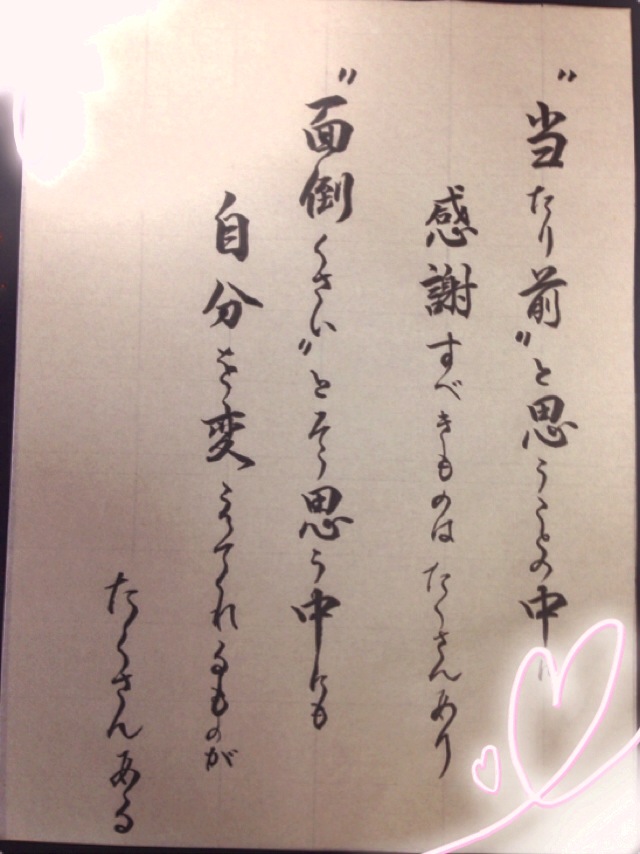 〃当たり前〃と思うことの中に
感謝すべきものはたくさんあり
〃面倒くさい〃とそう思う中にも
自分を変えてくれるものが
たくさんある